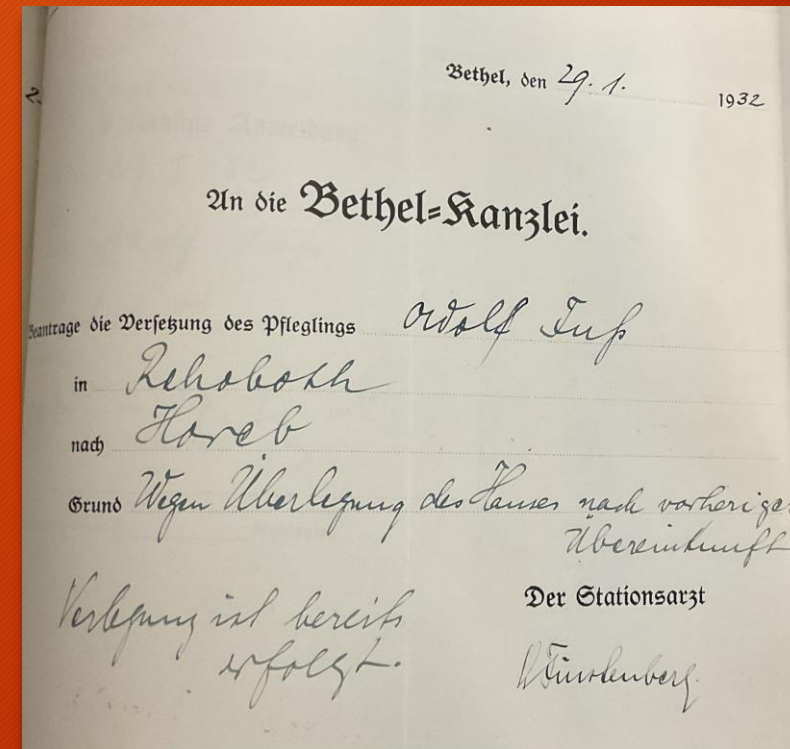 Bethel, den 29. 1. 1932
An die Bethel=Kanzlei.
Beantrage die Versetzung des Pfleglings Adolf Fuß
in Rehoboth
nach Horeb
Grund Wegen Überlegung des Hauses nach vorheriger
Übereinkunft
Der Stationsarzt
Verlegung ist bereits
erfolgt.